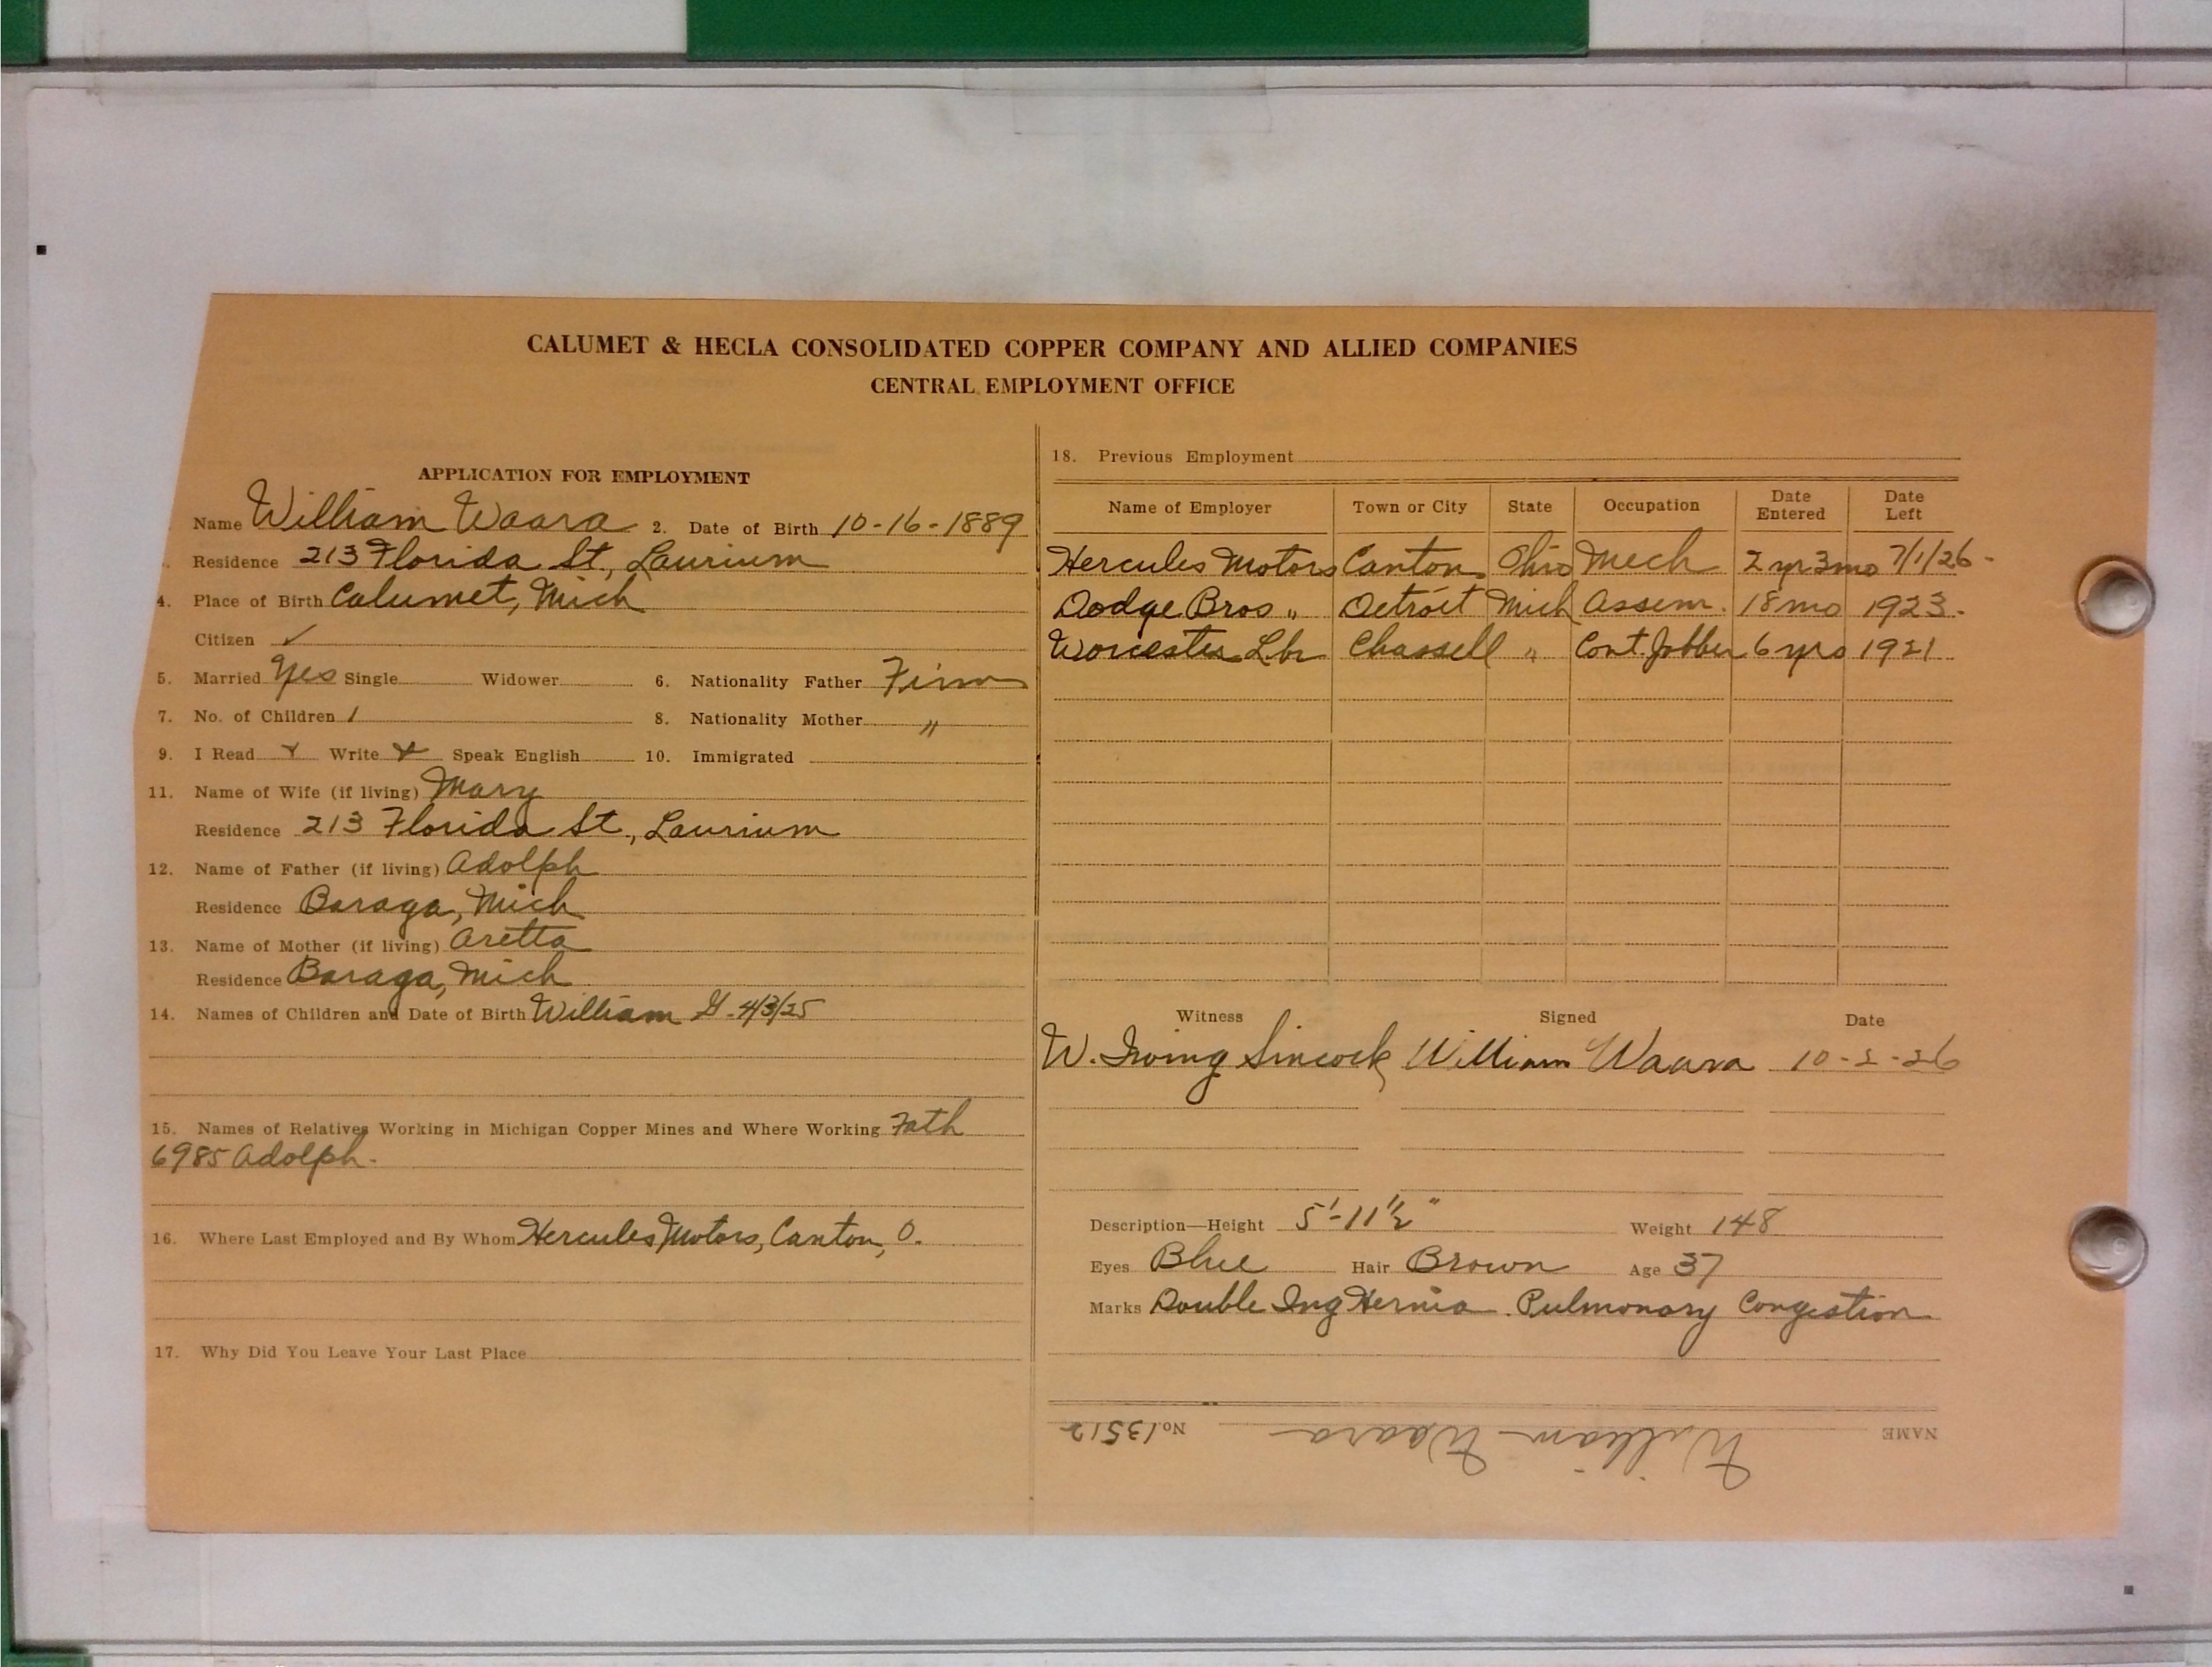 CALUMET & HECLA CONSOLIDATED COPPER COMPANY AND ALLIED COMPANIES
CENTRAL EMPLOYMENT OFFICE
APPLICATION FOR EMPLOYMENT
Name William Waara 2. Date of Birth 10-16-1889
Residence 213 Florida St., Laurium
4. Place of Birth Calumet, Mich
Citizen ✓
5. Married Yes Single Widower 6. Nationality Father Finn
7. No. of Children 1 8. Nationality Mother "
9. I Read Write Speak English 10. Immigrated
11. Name of Wife (if living) Mary
Residence 213 Florida St., Laurium
12. Name of Father (if living) Adolph
Residence Baraga, Mich
13. Name of Mother (if living) Aretta
Residence Baraga, Mich
14. Names of Children and Date of Birth William G. 4/3/25
15. Names of Relatives Working in Michigan Copper Mines and Where Working Fath
6985 Adolph.
16. Where Last Employed and By Whom Hercules Motors, Canton, O.
17. Why Did You Leave Your Last Place
18. Previous Employment
Name of Employer Town or City State Occupation Date Entered Date Left
Hercules Motors Canton, Ohio Mech 2 yr 3 mo 7/1/26-
Dodge Bros " Detroit Mich Assem. 18 mo 1923-
Worcester Lbr Chassell " Cont. Jobber 6 yrs 1921
Witness Signed Date
W. Irving Sincock William Waara 10-2-26
Description—Height 5'-11½" Weight 148
Eyes Blue Hair Brown Age 37
Marks Double Ing Hernia. Pulmonary Congestion
NAME William Waara No. 13512